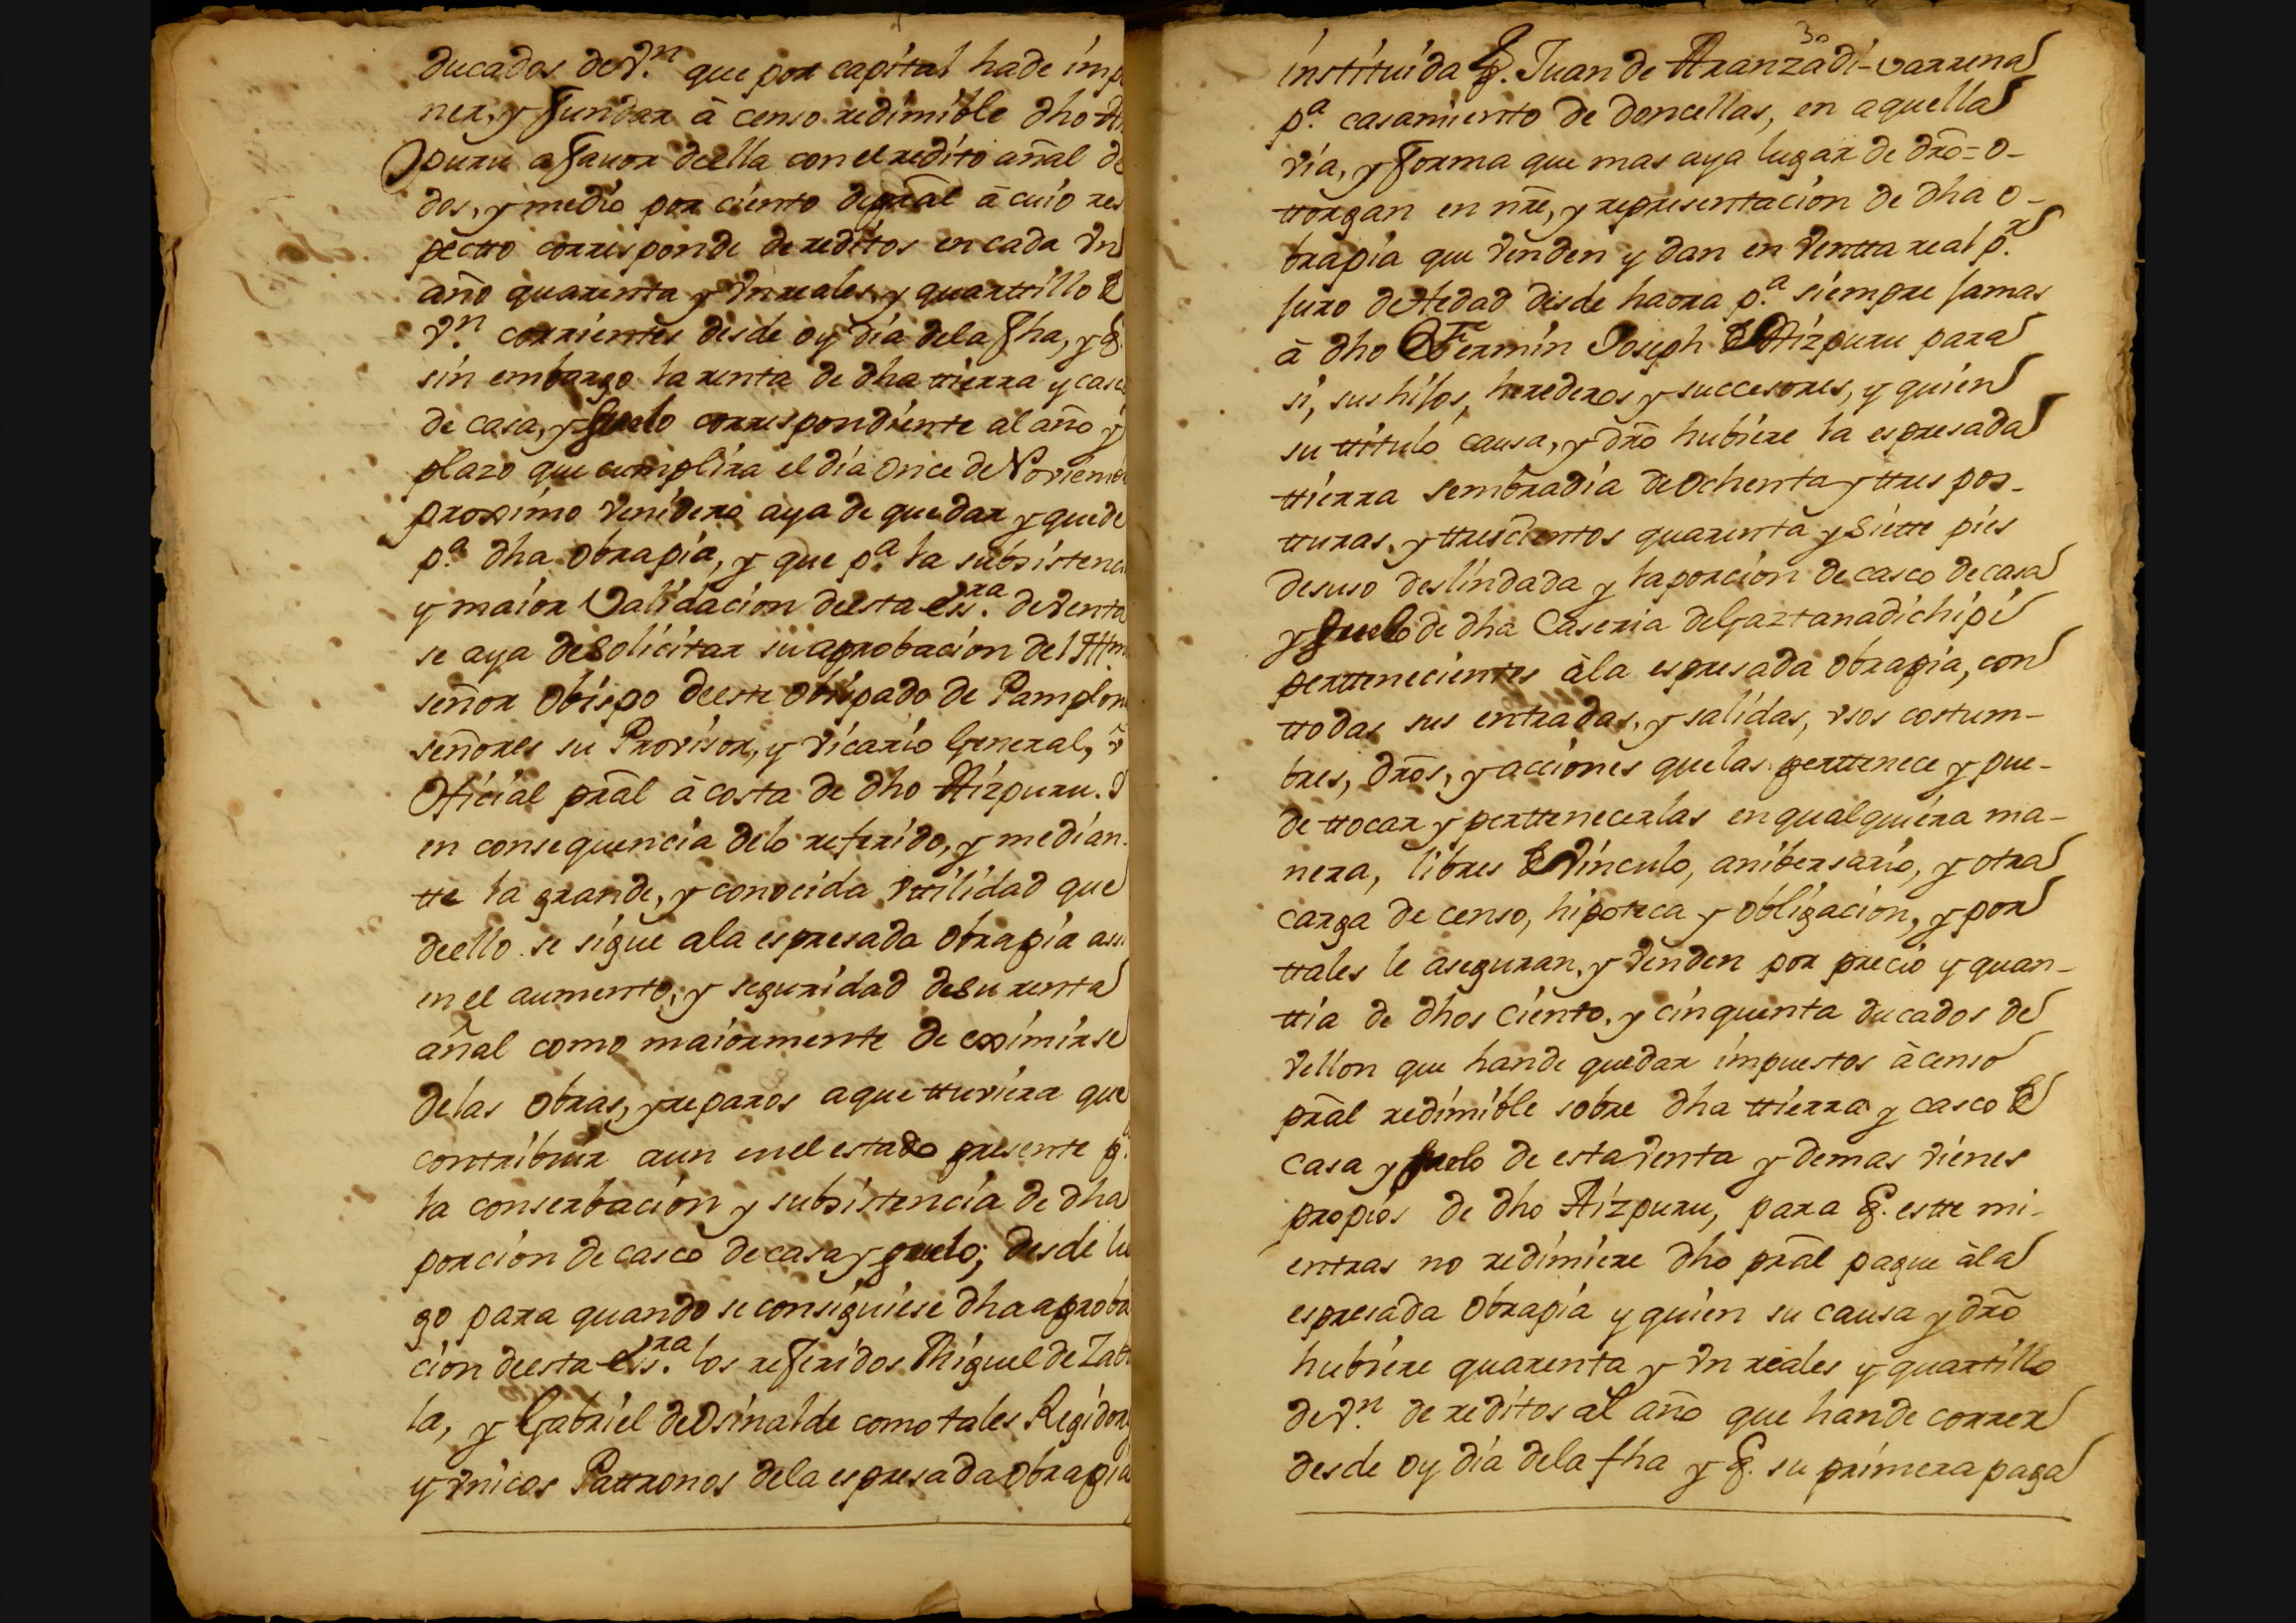 ducados de v.n que por capital hade imp
ner, y fundar à censo redimible dho
puru a favor deella con el redito añal de
dos, y medio por ciento de pral à cuio res
pectto corresponde de reditos en cada vn
año quarenta y vn reales, y quarttillo de
v.n corrientes desde oy dia dela fha, y q.
sin embargo la renta de dha ttierra y casc
de casa, y suelo correspondiente al año y
plazo que cumplira el dia once de Noviem
proximo venidero aya de quedar y quede
p.a dha obrapia, y que p.a la subsistenc
y maior validacion deesta ess.ra de venta
se aya de solicitar su aprobacion del Ittm
señor Obispo deeste obispado de Pamplon
señores su Provisor, y vicario General, ò
Oficial pral à costa de dho Aizpuru. Y
en consequencia delo referido, y median
tte la grande, y conocida vttilidad que
deello se sigue ala espresada obrapia assi
en el aumento, y seguridad de su renta
añal como maiormente de eximirse
delas obras, y reparos aque tturiera que
contribuir aun en el estado presente p.a
la conserbacion y subsistencia de dha
porcion de casco de casa y suelo; desde lu
go para quando se consiguiese dha aproba
cion deesta ess.ra los referidos Miguel de Zab
la, y Gabriel de Osinalde como tales Regidor
y vnicos Pattronos dela espresada Obrapia
30
instituida p. Juan de Aranzadi-varrena
p.a casamiento de doncellas, en aquella
via, y forma que mas aya lugar de dro = o-
ttorgan en nre, y representacion de dha o-
brapia que venden y dan en ventta real p.r
juro de Hedad desde haora p.a siempre jamas
à dho Fermin Joseph de Aizpuru para
si, sus hijos, herederos y succesores, y quien
su ttitulo causa, y dro hubiere la espresada
ttierra sembradia de ochenta y ttres pos-
tturas, y ttrescientos quarenta y siette pies
desuso deslindada y la porcion de casco de casa
y suelo de dha Caseria de Gaztanadichipi
perttenecientes à la espresada obrapia, con
ttodas sus entradas, y salidas, vsos costum-
bres, dros, y acciones que las perttenece y pue-
de ttocar y perttenecerlas en qualquiera ma-
nera, libres de vinculo, anibersario, y otra
carga de censo, hipoteca y obligacion, y por
ttales le aseguran, y venden por precio y quan-
ttia de dhos ciento, y cinquenta ducados de
vellon que hande quedar impuestos à censo
pral redimible sobre dha ttierra y casco de
casa y suelo de esta venta y demas vienes
propios de dho Aizpuru, para q. estte mi-
entras no redimiere dho pral pague à la
espresada obrapia y quien su causa y dro
hubiere quarenta y vn reales y quartillo
de v.n de reditos al año que hande correr
desde oy dia dela fha y q. su primera paga